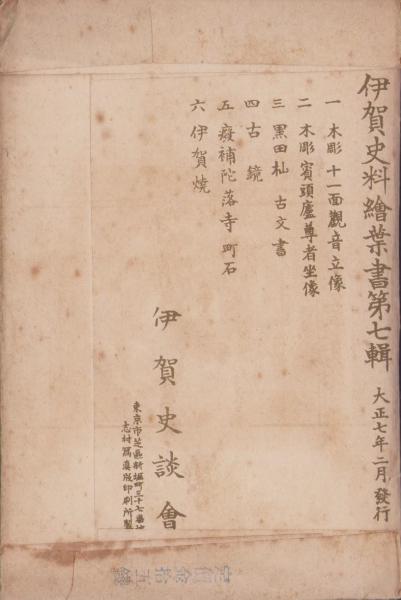 伊賀史料繪葉書第七輯 大正七年二月發行
一 木彫 十一面觀音立像
二 木彫 賓頭盧尊者坐像
三 黒田杣 古文書
四 古 鏡
五 癈補陀落寺 町石
六 伊賀燒
伊賀史談會
東京市芝區新堀町三十七番地
志村寫眞版印刷所製
定價金拾五錢